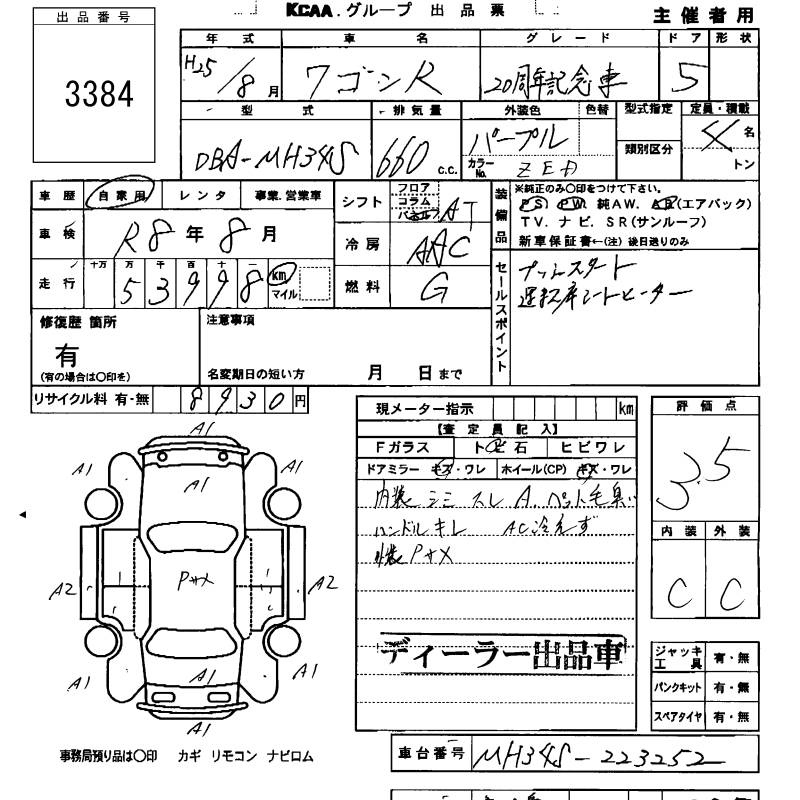 KCAA.グループ 出品票
主催者用
出品番号
3384
年式 車名 グレード ドア 形状
H25/8月 ワゴンR 20周年記念車 5
型式 排気量 外装色 色替 型式指定 定員・積載
DBA-MH34S 660 C.C. パープル 類別区分 4名
カラーNo. ZED トン
車歴 自家用 レンタ 事業.営業車
車検 R8年8月
走行 十万 万 千 百 十 一
53998 km マイル
シフト フロア コラム パネル AT
冷房 AAC
燃料 G
装備品 ※純正のみ〇印をつけて下さい。
PS PW 純AW. AB(エアバック)
TV. ナビ. SR(サンルーフ)
新車保証書←(注) 後日送りのみ
セールスポイント プッシュスタート
運転席シートヒーター
修復歴 箇所 注意事項
有
(有の場合は〇印を) 名変期日の短い方 月 日まで
リサイクル料 有・無 8930円
現メーター指示 km
【査定員記入】
Fガラス トビ石 ヒビワレ
ドアミラー キズ・ワレ ホイール(CP) キズ・ワレ
内装 シミ スレ A ペット毛臭い
ハンドルキレ AC冷えず
外装 Pサメ
ディーラー出品車
評価点
3.5
内装 外装
C C
ジャッキ工具 有・無
パンクキット 有・無
スペアタイヤ 有・無
A1
A1 A1
A1
A2 Pサメ A2
A1
A1 A1
A1
事務局預り品は〇印 カギ リモコン ナビロム
車台番号 MH34S-223252